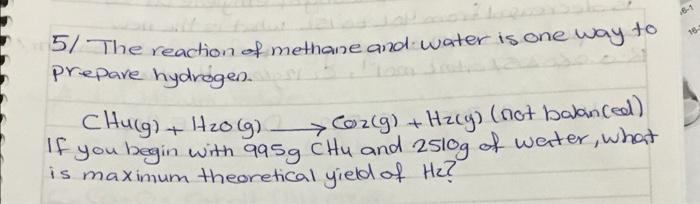 5/ The reaction of methane and water is one way to
prepare hydrogen.
CH4(g) + H2O(g) → CO2(g) + H2(g) (not balanced)
If you begin with 995g CH4 and 2510g of water, what
is maximum theoretical yield of H2?